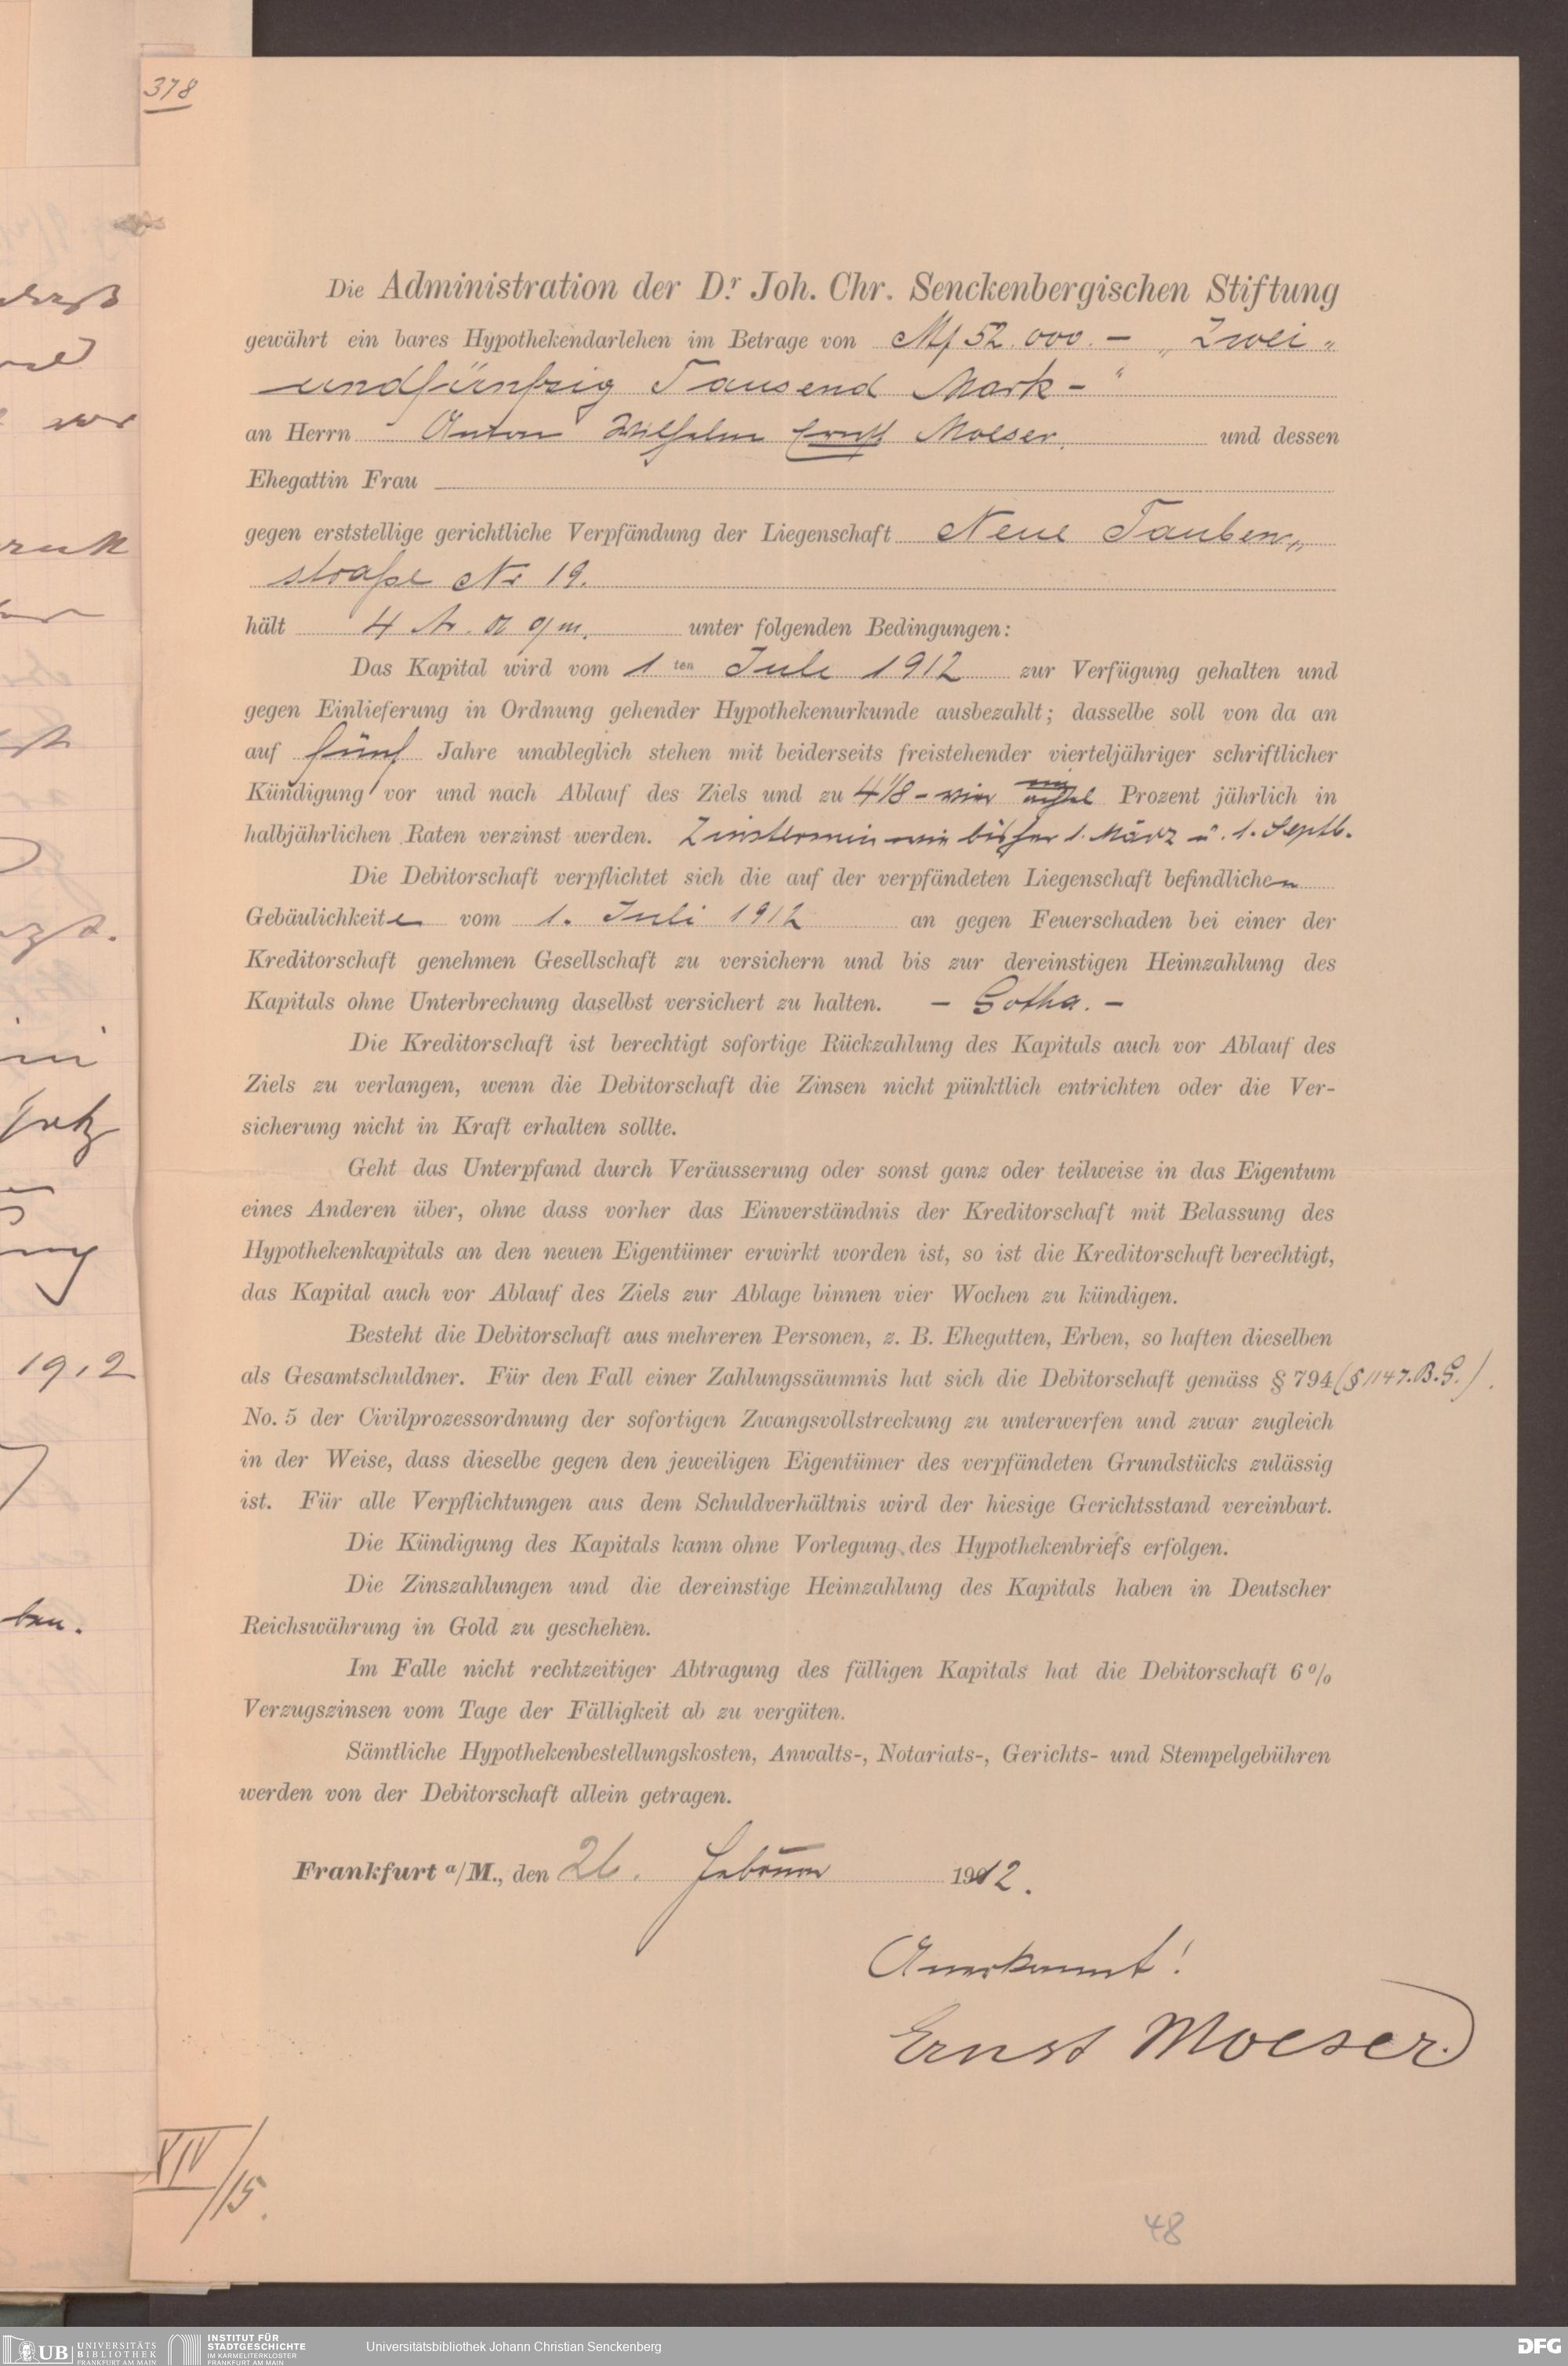 378
Die Administration der Dr. Joh. Chr. Senckenbergischen Stiftung
gewährt ein bares Hypothekendarlehen im Betrage von M 52.000.– „Zwei„
undfünfzig Tausend Mark–“
an Herrn Anton Wilhelm Ernst Moeser. und dessen
Ehegattin Frau
gegen erststellige gerichtliche Verpfändung der Liegenschaft Neue Tauben„
straße Nr 19.
hält 4 Ar. qm. unter folgenden Bedingungen:
Das Kapital wird vom 1ten Juli 1912 zur Verfügung gehalten und
gegen Einlieferung in Ordnung gehender Hypothekenurkunde ausbezahlt; dasselbe soll von da an
auf fünf Jahre unableglich stehen mit beiderseits freistehender vierteljähriger schriftlicher
Kündigung vor und nach Ablauf des Ziels und zu 4 1/8 – vier achtel Prozent jährlich in
halbjährlichen Raten verzinst werden. Zinstermin wie bisher 1. März u. 1. Septb.
Die Debitorschaft verpflichtet sich die auf der verpfändeten Liegenschaft befindlichen
Gebäulichkeite vom 1. Juli 1912 an gegen Feuerschaden bei einer der
Kreditorschaft genehmen Gesellschaft zu versichern und bis zur dereinstigen Heimzahlung des
Kapitals ohne Unterbrechung daselbst versichert zu halten. – Gotha. –
Die Kreditorschaft ist berechtigt sofortige Rückzahlung des Kapitals auch vor Ablauf des
Ziels zu verlangen, wenn die Debitorschaft die Zinsen nicht pünktlich entrichten oder die Ver-
sicherung nicht in Kraft erhalten sollte.
Geht das Unterpfand durch Veräusserung oder sonst ganz oder teilweise in das Eigentum
eines Anderen über, ohne dass vorher das Einverständnis der Kreditorschaft mit Belassung des
Hypothekenkapitals an den neuen Eigentümer erwirkt worden ist, so ist die Kreditorschaft berechtigt,
das Kapital auch vor Ablauf des Ziels zur Ablage binnen vier Wochen zu kündigen.
Besteht die Debitorschaft aus mehreren Personen, z. B. Ehegatten, Erben, so haften dieselben
als Gesamtschuldner. Für den Fall einer Zahlungssäumnis hat sich die Debitorschaft gemäss § 794 (§ 1147. B.G.).
No. 5 der Civilprozessordnung der sofortigen Zwangsvollstreckung zu unterwerfen und zwar zugleich
in der Weise, dass dieselbe gegen den jeweiligen Eigentümer des verpfändeten Grundstücks zulässig
ist. Für alle Verpflichtungen aus dem Schuldverhältnis wird der hiesige Gerichtsstand vereinbart.
Die Kündigung des Kapitals kann ohne Vorlegung des Hypothekenbriefs erfolgen.
Die Zinszahlungen und die dereinstige Heimzahlung des Kapitals haben in Deutscher
Reichswährung in Gold zu geschehen.
Im Falle nicht rechtzeitiger Abtragung des fälligen Kapitals hat die Debitorschaft 6 %
Verzugszinsen vom Tage der Fälligkeit ab zu vergüten.
Sämtliche Hypothekenbestellungskosten, Anwalts-, Notariats-, Gerichts- und Stempelgebühren
werden von der Debitorschaft allein getragen.
Frankfurt a/M., den 26. Februar 1912.
Anerkannt!
Ernst Moeser.
XIV/15.
48
1912
UB UNIVERSITÄTS BIBLIOTHEK FRANKFURT AM MAIN
INSTITUT FÜR STADTGESCHICHTE IM KARMELITERKLOSTER FRANKFURT AM MAIN
Universitätsbibliothek Johann Christian Senckenberg
DFG